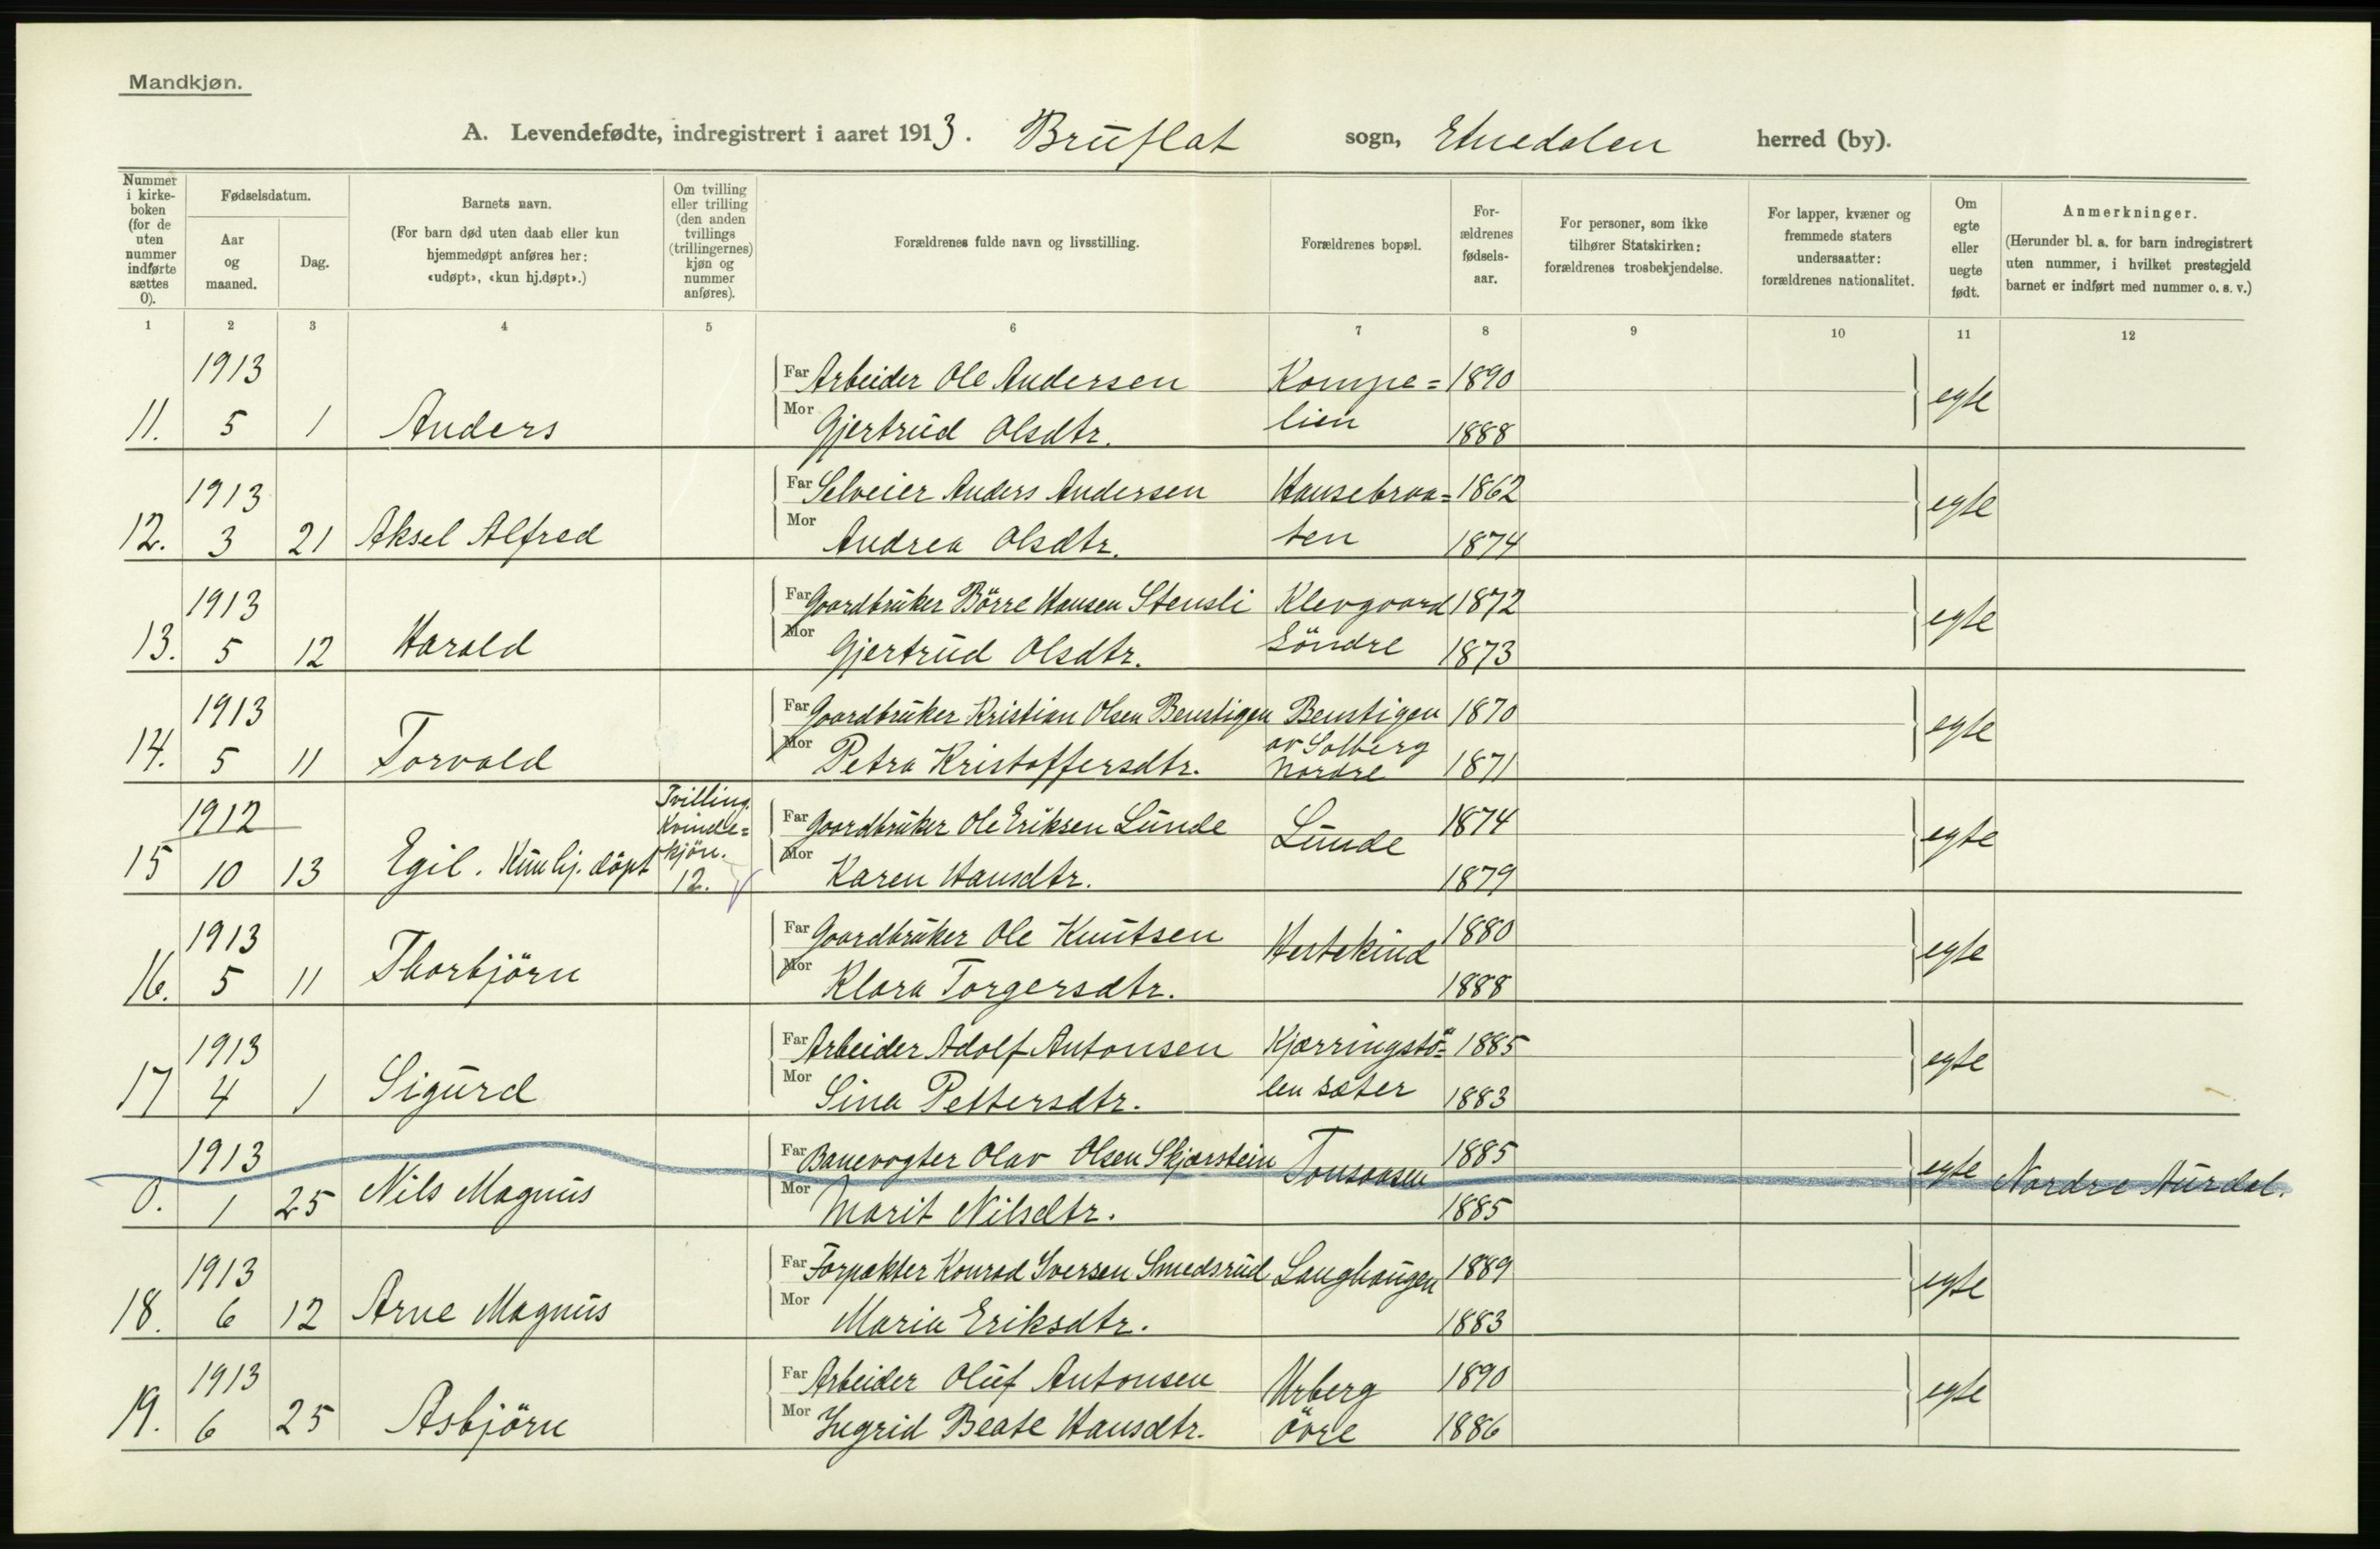 Mandkjøn.
A. Levendefødte, indregistrert i aaret 1913. Bruflat sogn, Etnedalen herred (by).
Nummer i kirke-boken (for de uten nummer indførte sættes 0).
Fødselsdatum.
Aar og maaned.
Dag.
Barnets navn.
(For barn død uten daab eller kun hjemmedøpt anføres her: «udøpt», «kun hj.døpt».)
Om tvilling eller trilling (den anden tvillings (trillingernes) kjøn og nummer anføres).
Forældrenes fulde navn og livsstilling.
Forældrenes bopæl.
For-ældrenes fødsels-aar.
For personer, som ikke tilhører Statskirken: forældrenes trosbekjendelse.
For lapper, kvæner og fremmede staters undersaatter: forældrenes nationalitet.
Om egte eller uegte født.
Anmerkninger.
(Herunder bl. a. for barn indregistrert uten nummer, i hvilket prestegjeld barnet er indført med nummer o. s. v.)
1 2 3 4 5 6 7 8 9 10 11 12
1913 Far Arbeider Ole Andersen Kompe= 1890
11. 5 1 Anders Mor Gjertrud Olsdtr. lien 1888 egte
1913 Far Selveier Anders Andersen Hansebraa= 1862
12. 3 21 Aksel Alfred Mor Andrea Olsdtr. ten 1874 egte
1913 Far Gaardbruker Börre Hansen Stensli Klevgaard 1872
13. 5 12 Harald Mor Gjertrud Olsdtr. Söndre 1873 egte
1913 Far Gaardbruker Kristian Olsen Benstigen Benstigen 1870
14. 5 11 Torvald Mor Petra Kristoffersdtr. av Solberg nordre 1871 egte
1912 Tvilling. Kvinde= Far Gaardbruker Ole Eriksen Lunde Lunde 1874
15 10 13 Egil. Kun hj. döpt kjön. 12. Mor Karen Hansdtr. 1879 egte
1913 Far Gaardbruker Ole Knutsen Hertekind 1880
16. 5 11 Thorbjörn Mor Klara Torgersdtr. 1888 egte
1913 Far Arbeider Adolf Antonsen Kjærringstö= 1885
17 4 1 Sigurd Mor Sina Pettersdtr. len sæter 1883 egte
1913 Far Banevogter Olav Olsen Skjærstein Tonsaasen 1885
0. 1 25 Nils Magnus Mor Marit Nilsdtr. 1885 egte Nordre Aurdal.
1913 Far Forpakter Konrad Iversen Smedsrud Langhaugen 1889
18. 6 12 Arne Magnus Mor Maria Eriksdtr. 1883 egte
1913 Far Arbeider Oluf Antonsen Urberg 1890
19. 6 25 Asbjörn Mor Ingrid Beate Hansdtr. övre 1886 egte